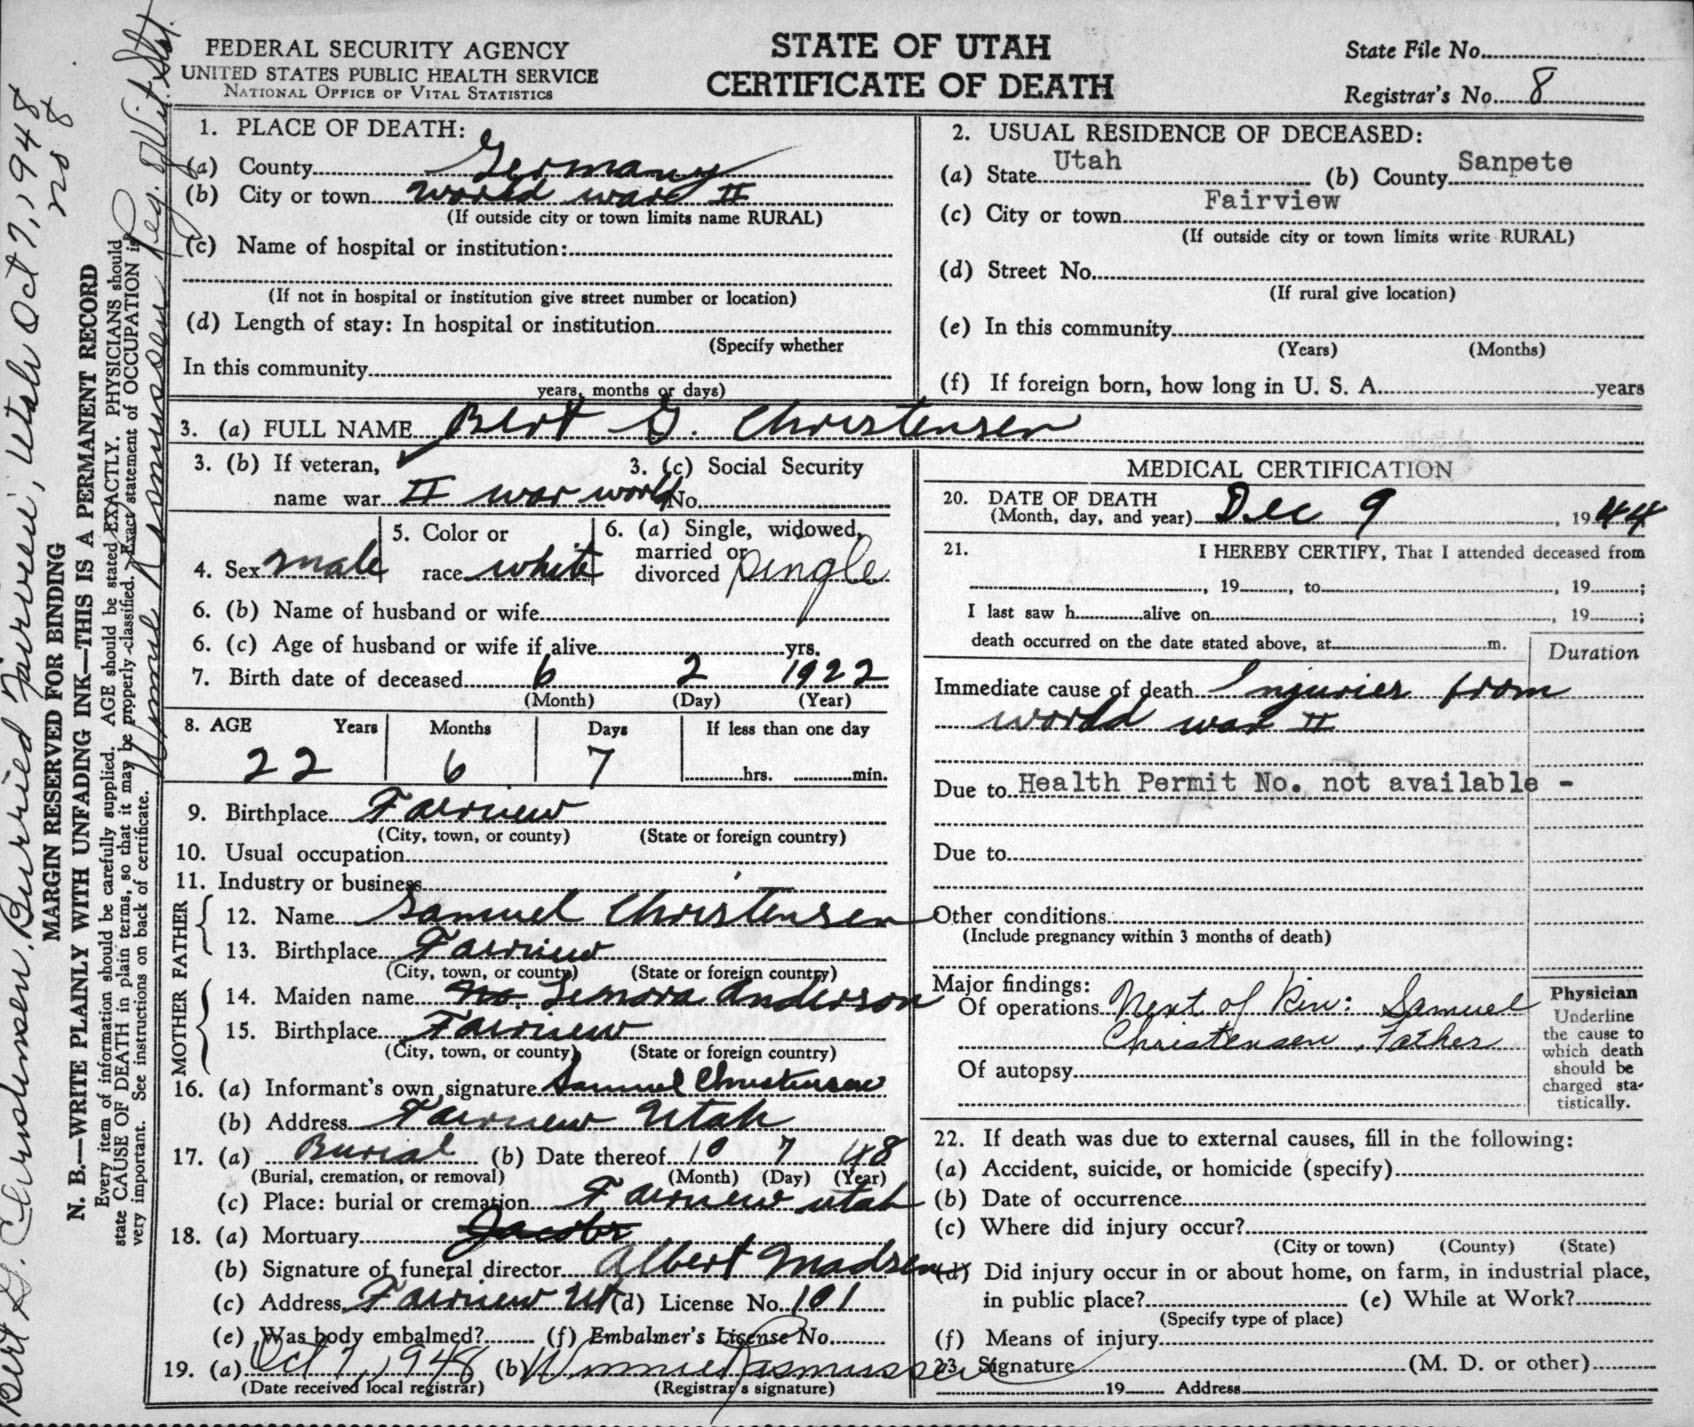 FEDERAL SECURITY AGENCY
UNITED STATES PUBLIC HEALTH SERVICE
NATIONAL OFFICE OF VITAL STATISTICS
STATE OF UTAH
CERTIFICATE OF DEATH
State File No.
Registrar's No. 8
1. PLACE OF DEATH:
(a) County Germany
(b) City or town World war II
(If outside city or town limits name RURAL)
(c) Name of hospital or institution:
(If not in hospital or institution give street number or location)
(d) Length of stay: In hospital or institution
(Specify whether
In this community
years, months or days)
2. USUAL RESIDENCE OF DECEASED:
(a) State Utah (b) County Sanpete
(c) City or town Fairview
(If outside city or town limits write RURAL)
(d) Street No.
(If rural give location)
(e) In this community
(Years) (Months)
(f) If foreign born, how long in U. S. A. years
3. (a) FULL NAME Bert G. Christensen
3. (b) If veteran, 3. (c) Social Security
name war II war world No.
4. Sex male 5. Color or race white 6. (a) Single, widowed, married or divorced single
6. (b) Name of husband or wife
6. (c) Age of husband or wife if alive yrs.
7. Birth date of deceased 6 2 1922
(Month) (Day) (Year)
8. AGE Years Months Days If less than one day
22 6 7 hrs. min.
9. Birthplace Fairview
(City, town, or county) (State or foreign country)
10. Usual occupation
11. Industry or business
FATHER
12. Name Samuel Christensen
13. Birthplace Fairview
(City, town, or county) (State or foreign country)
MOTHER
14. Maiden name Lenora Anderson
15. Birthplace Fairview
(City, town, or county) (State or foreign country)
16. (a) Informant's own signature Samuel Christensen
(b) Address Fairview Utah
17. (a) Burial (b) Date thereof 10 7 48
(Burial, cremation, or removal) (Month) (Day) (Year)
(c) Place: burial or cremation Fairview utah
18. (a) Mortuary Jacobs
(b) Signature of funeral director Albert Madsen
(c) Address Fairview Ut (d) License No. 101
(e) Was body embalmed? (f) Embalmer's License No.
19. (a) Oct 7, 1948 (b) Winnie Rasmussen
(Date received local registrar) (Registrar's signature)
MEDICAL CERTIFICATION
20. DATE OF DEATH
(Month, day, and year) Dec 9, 1944
21. I HEREBY CERTIFY, That I attended deceased from
, 19 , to , 19 ;
I last saw h alive on , 19 ;
death occurred on the date stated above, at m.
Duration
Immediate cause of death Injuries from
world war II
Due to Health Permit No. not available -
Due to
Other conditions
(Include pregnancy within 3 months of death)
Major findings:
Of operations Next of Kin: Samuel
Christensen, Father
Of autopsy
Physician
Underline
the cause to
which death
should be
charged sta-
tistically.
22. If death was due to external causes, fill in the following:
(a) Accident, suicide, or homicide (specify)
(b) Date of occurrence
(c) Where did injury occur?
(City or town) (County) (State)
(d) Did injury occur in or about home, on farm, in industrial place,
in public place? (e) While at Work?
(Specify type of place)
(f) Means of injury
23. Signature (M. D. or other)
19 Address
Bert G. Christensen. Burried Fairview, Utah Oct 7, 1948
no 8
MARGIN RESERVED FOR BINDING
N. B.—WRITE PLAINLY WITH UNFADING INK—THIS IS A PERMANENT RECORD
Every item of information should be carefully supplied. AGE should be stated EXACTLY. PHYSICIANS should
state CAUSE OF DEATH in plain terms, so that it may be properly classified. Exact statement of OCCUPATION is
very important. See instructions on back of certificate.
Winnie Rasmussen Reg. of Vit. Stat.